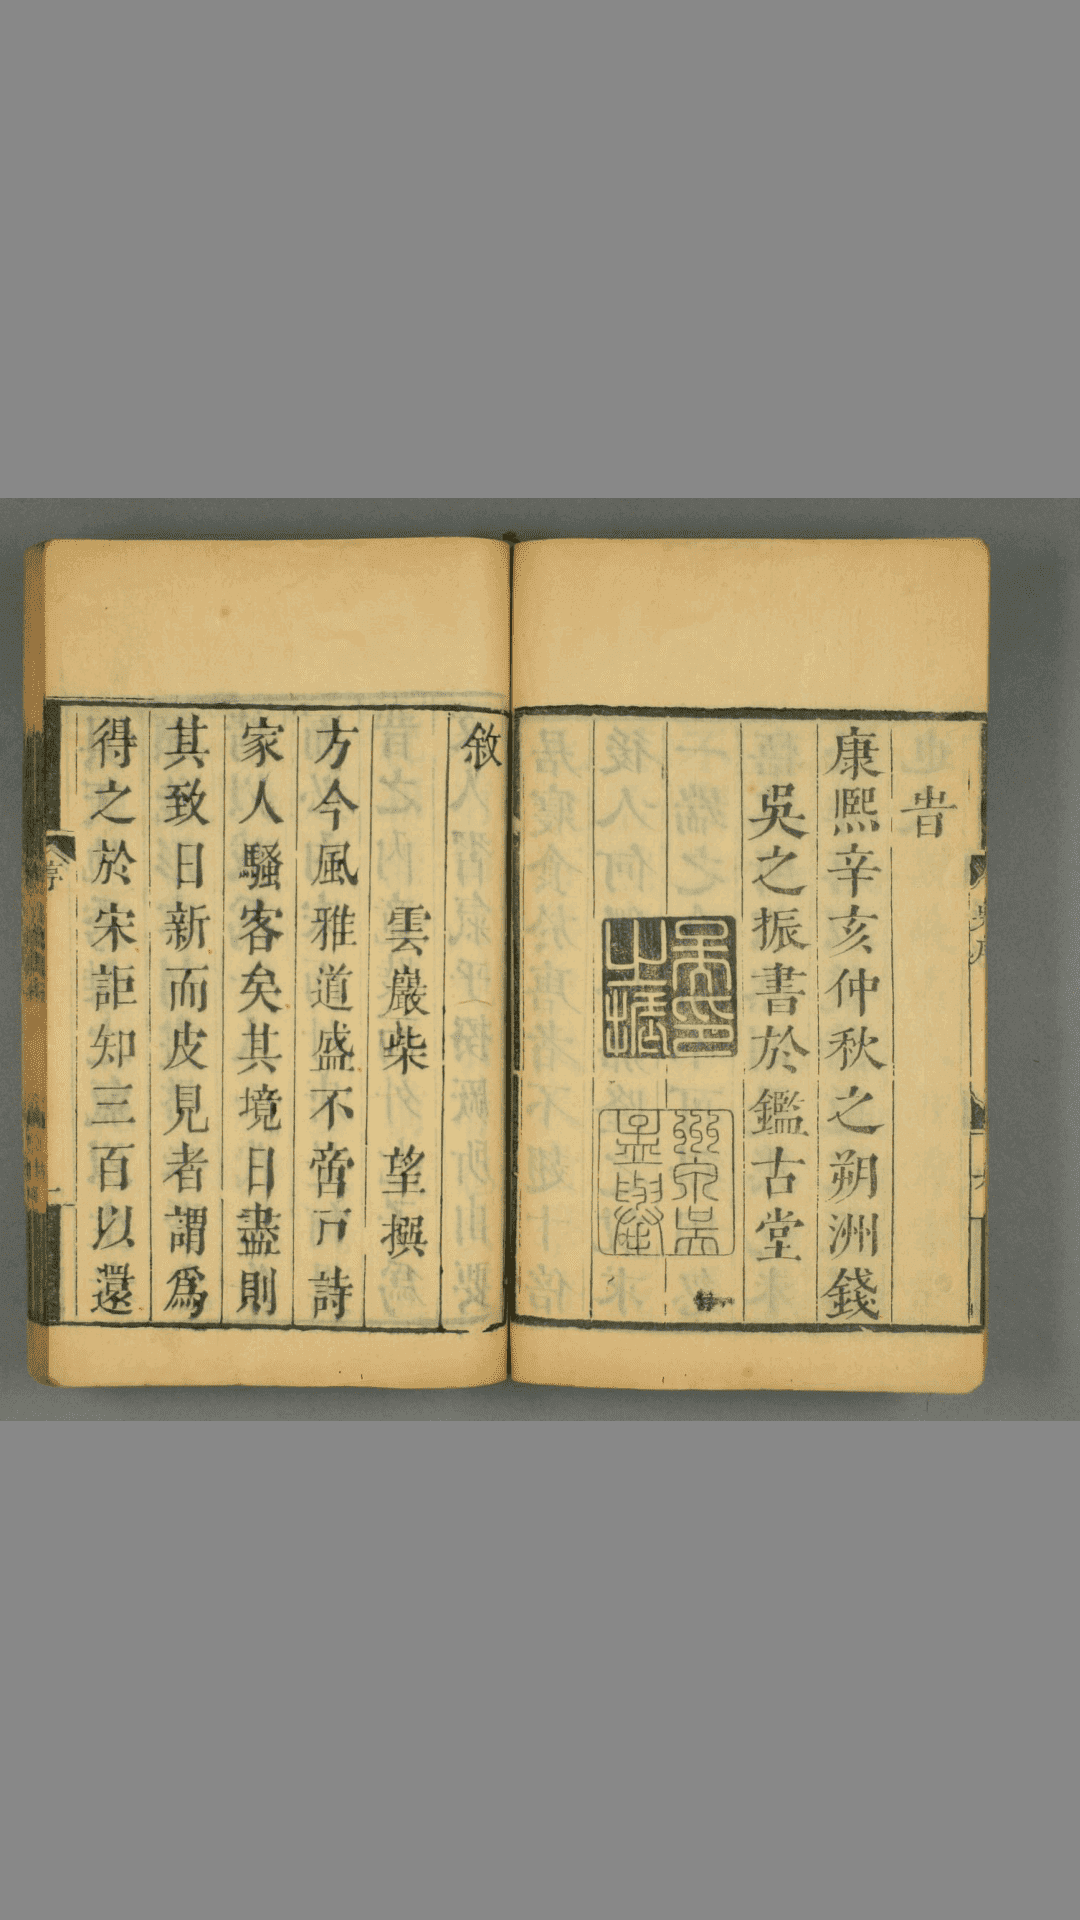 旹
康熙辛亥仲秋之朔洲錢
吳之振書於鑑古堂
吳印
之振
敘
雲巖柴 望撰
方今風雅道盛不啻戶詩
家人騷客矣其境日盡則
其致日新而皮見者謂爲
得之於宋詎知三百以還
序